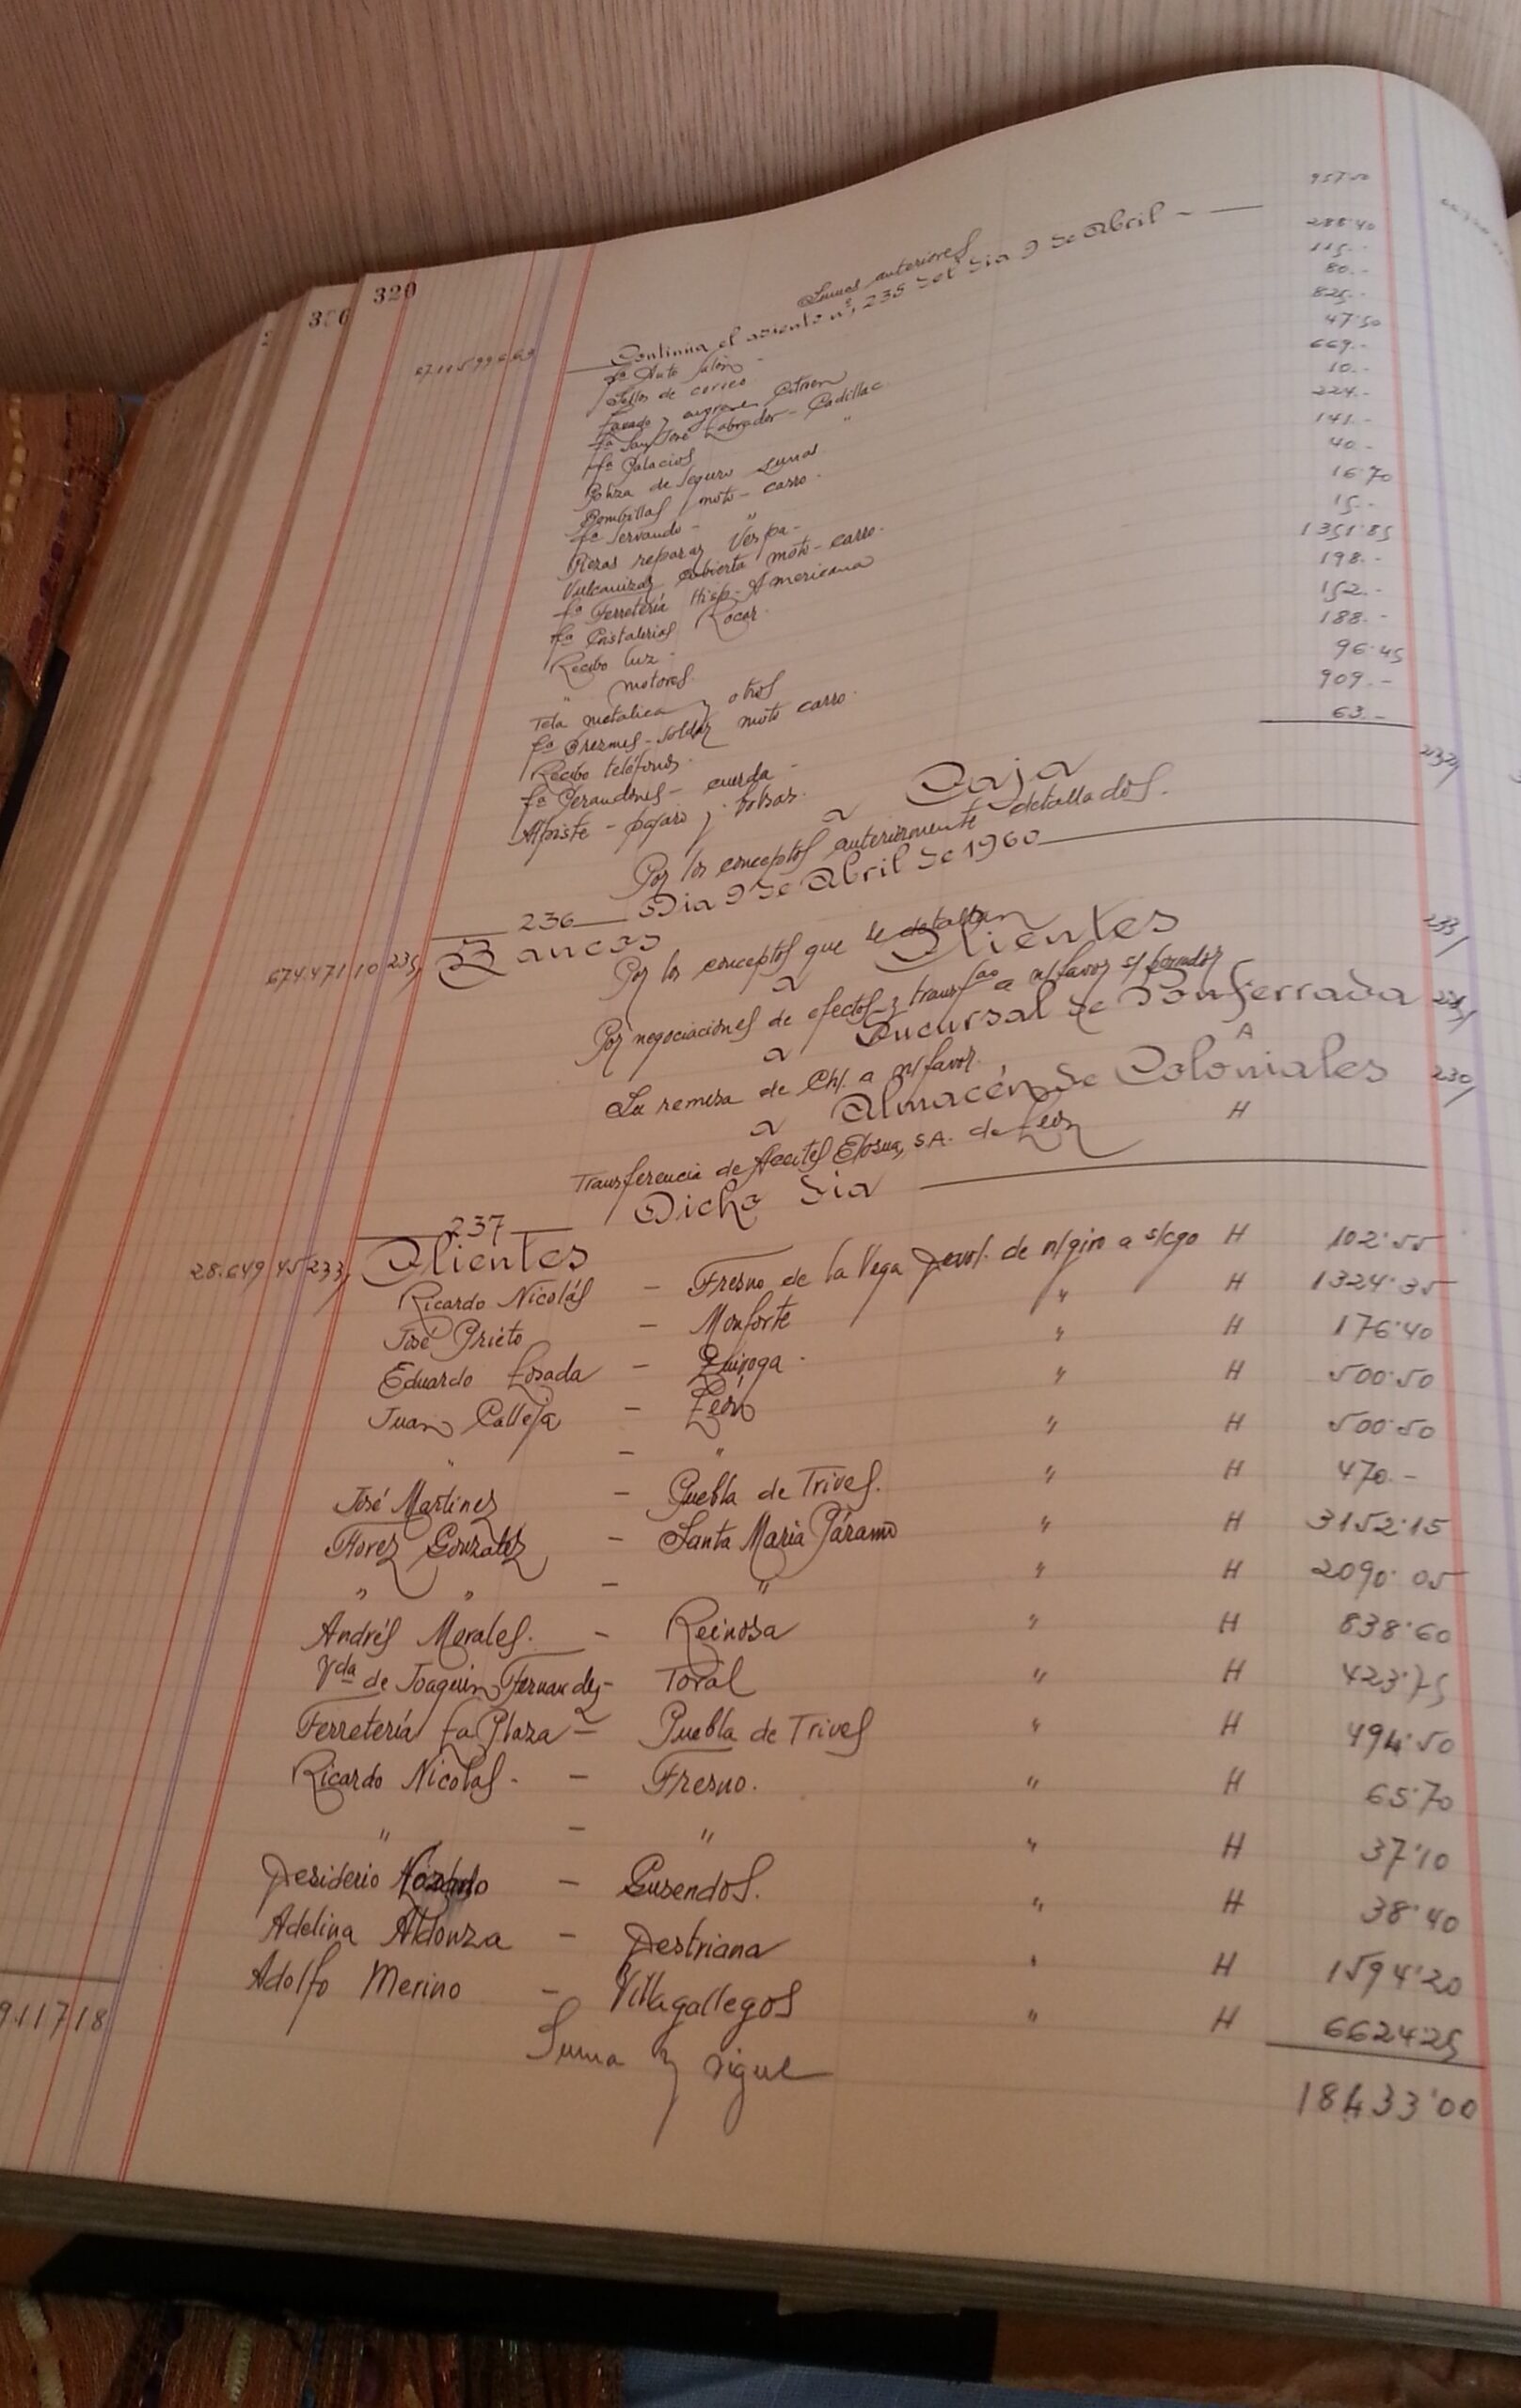 320
Sumas anteriores 957'50
Continúa el asiento nº 235 del día 9 de Abril
fª Auto Salón 288'40
Sellos de correo 115.-
Lavado y engrase Citroen 80.-
fª San José Labrador - Cadillac 825.-
fª Palacios " 47'50
Póliza de Seguro Lunas 669.-
Bombillas moto-carro 10.-
fª Servando - " 224.-
Piezas reparar Vespa - 141.-
Vulcanizar cubierta moto-carro 40.-
fª Ferretería Hisp-Americana 16'70
fª Cristalerías Rocar 15.-
Recibo luz - 1351'85
" motores 198.-
Tela metálica y otros 152.-
fª Brezmes - soldar moto carro 188.-
Recibo teléfonos 96'45
fª Perandones - cuerda - 909.-
Alpiste - pájaro y bolsas 63.-
a Caja 232/
Por los conceptos anteriormente detallados.
236 Dia 9 de Abril de 1960
674.471 10 235/ Bancos
Por los conceptos que se detallan
a Clientes 233/
Por negociaciones de efectos y transfªs a n/favor s/borrador
a Sucursal de Ponferrada
La remesa de Ch/. a n/favor. A
a Almacén de Coloniales 230/
Transferencia de Aceites Elosua, S.A. de León H
237 Dicho dia
28.649 45 233/ Clientes
Ricardo Nicolás - Fresno de la Vega Devol. de n/giro a s/cgo H 102'55
José Prieto - Monforte " H 1324'35
Eduardo Losada - Quiroga - " H 176'40
Juan Calleja - León " H 500'50
" - " " H 500'50
José Martínez - Puebla de Trives. " H 470.-
Florez González - Santa Maria Páramo " H 3152'15
" " - " " H 2090'05
Andrés Morales. - Reinosa " H 838'60
Vda de Joaquin Fernandez - Toral " H 423'75
Ferretería La Plaza - Puebla de Trives " H 494'50
Ricardo Nicolas - - Fresno. " H 65'70
" - " " H 37'10
Desiderio - Gusendos. " H 38'40
Adelina Aldonza - Destriana " H 1594'20
Adolfo Merino - Villagallegos " H 6624'25
Suma y sigue 18433'00